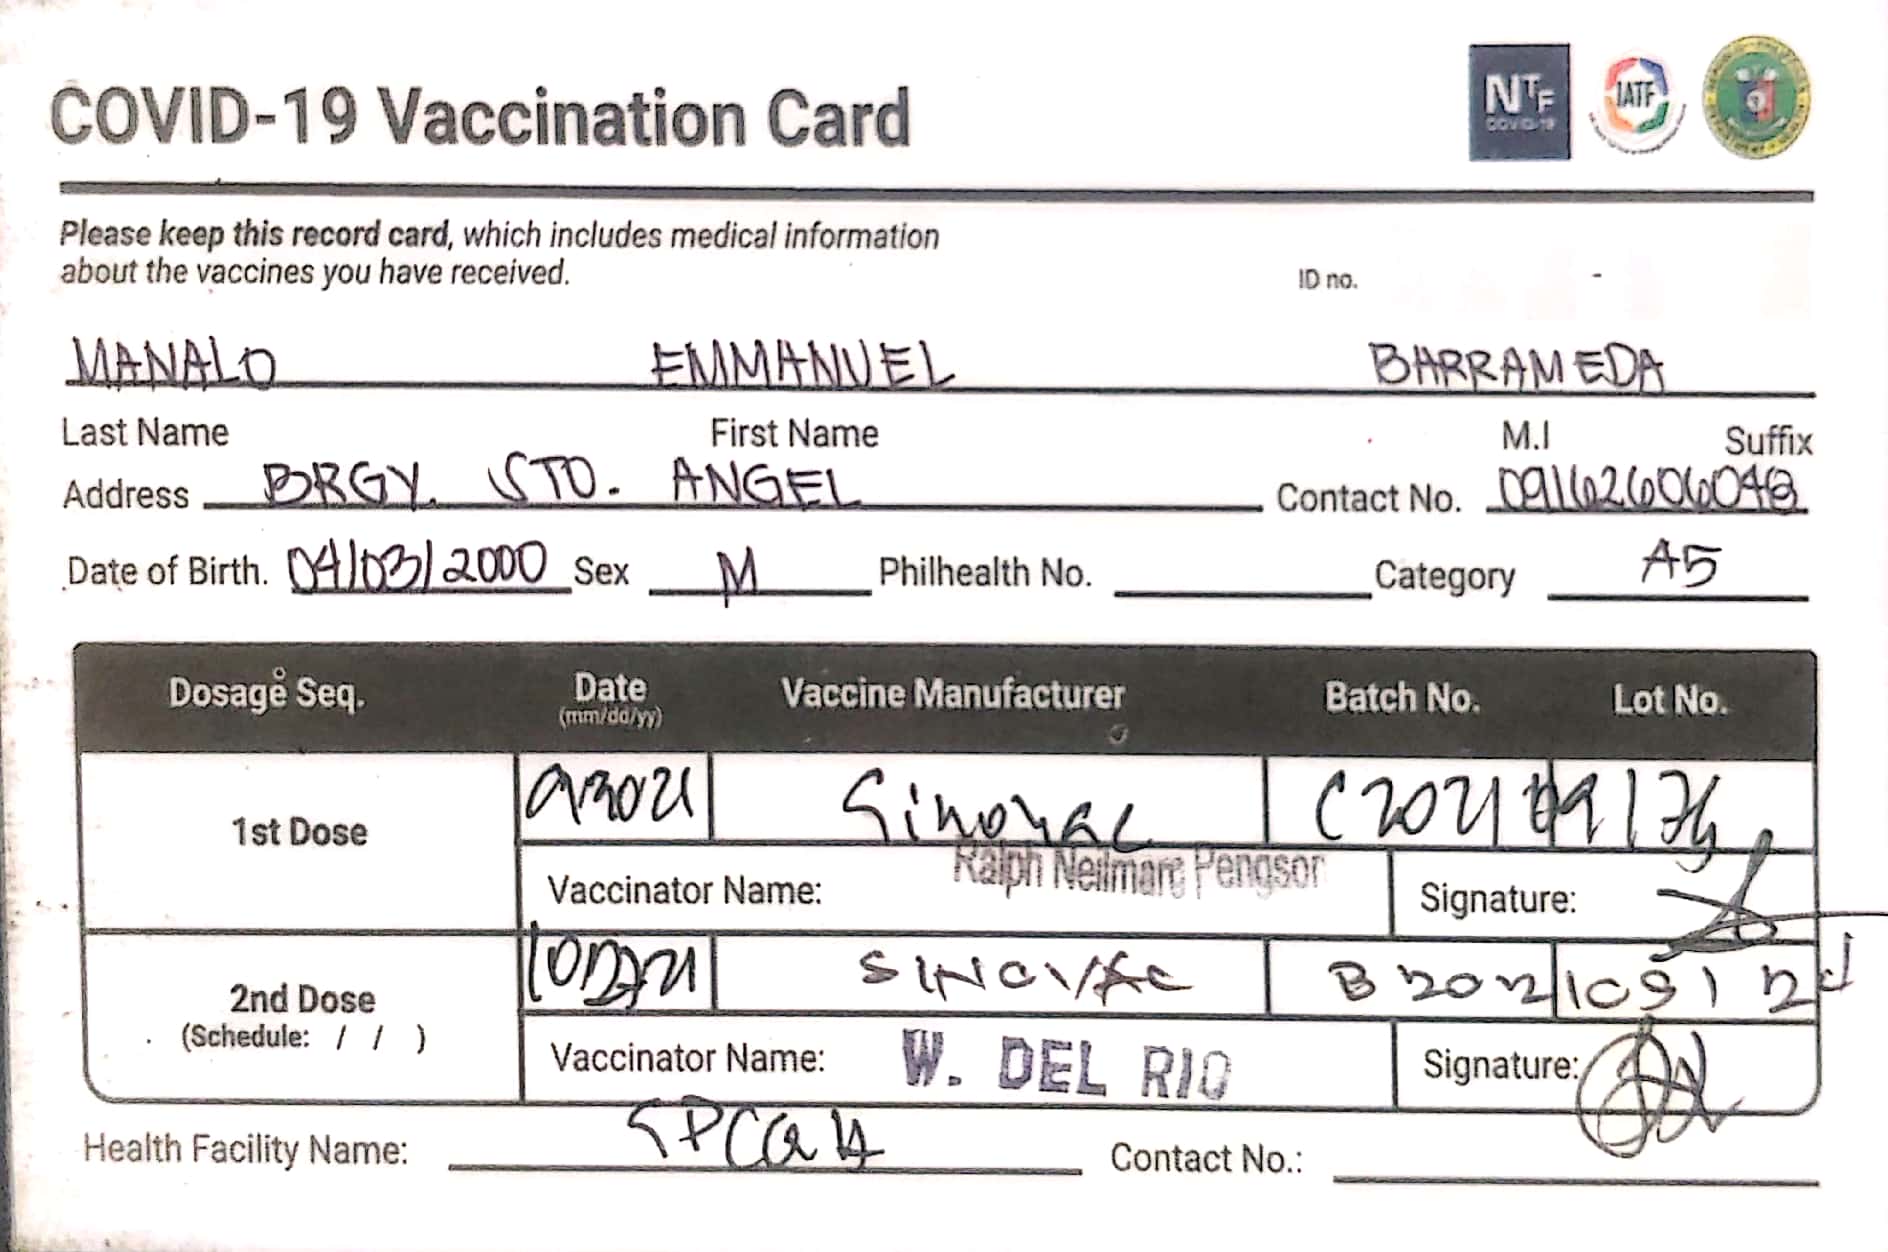 COVID-19 Vaccination Card
NTF COVID-19 IATF
Please keep this record card, which includes medical information
about the vaccines you have received.
ID no. -
MANALO EMMANUEL BARRAMEDA
Last Name First Name M.I Suffix
Address BRGY. STO. ANGEL Contact No.
Date of Birth. 04/03/2000 Sex M Philhealth No. Category A5
Dosage Seq. Date Vaccine Manufacturer Batch No. Lot No.
(mm/dd/yy)
1st Dose Sinovac
Vaccinator Name: Ralph Neilmarc Pengson Signature:
2nd Dose SINOVAC
(Schedule: / / )
Vaccinator Name: W. DEL RIO Signature:
Health Facility Name: Contact No.: